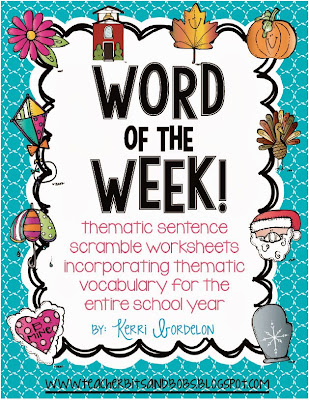 WORD
OF THE
WEEK!
thematic sentence
scramble worksheets
incorporating thematic
vocabulary for the
entire school year
BY: Kerri Bordelon
BE
MINE
WWW.TEACHERBITSANDBOBS.BLOGSPOT.COM